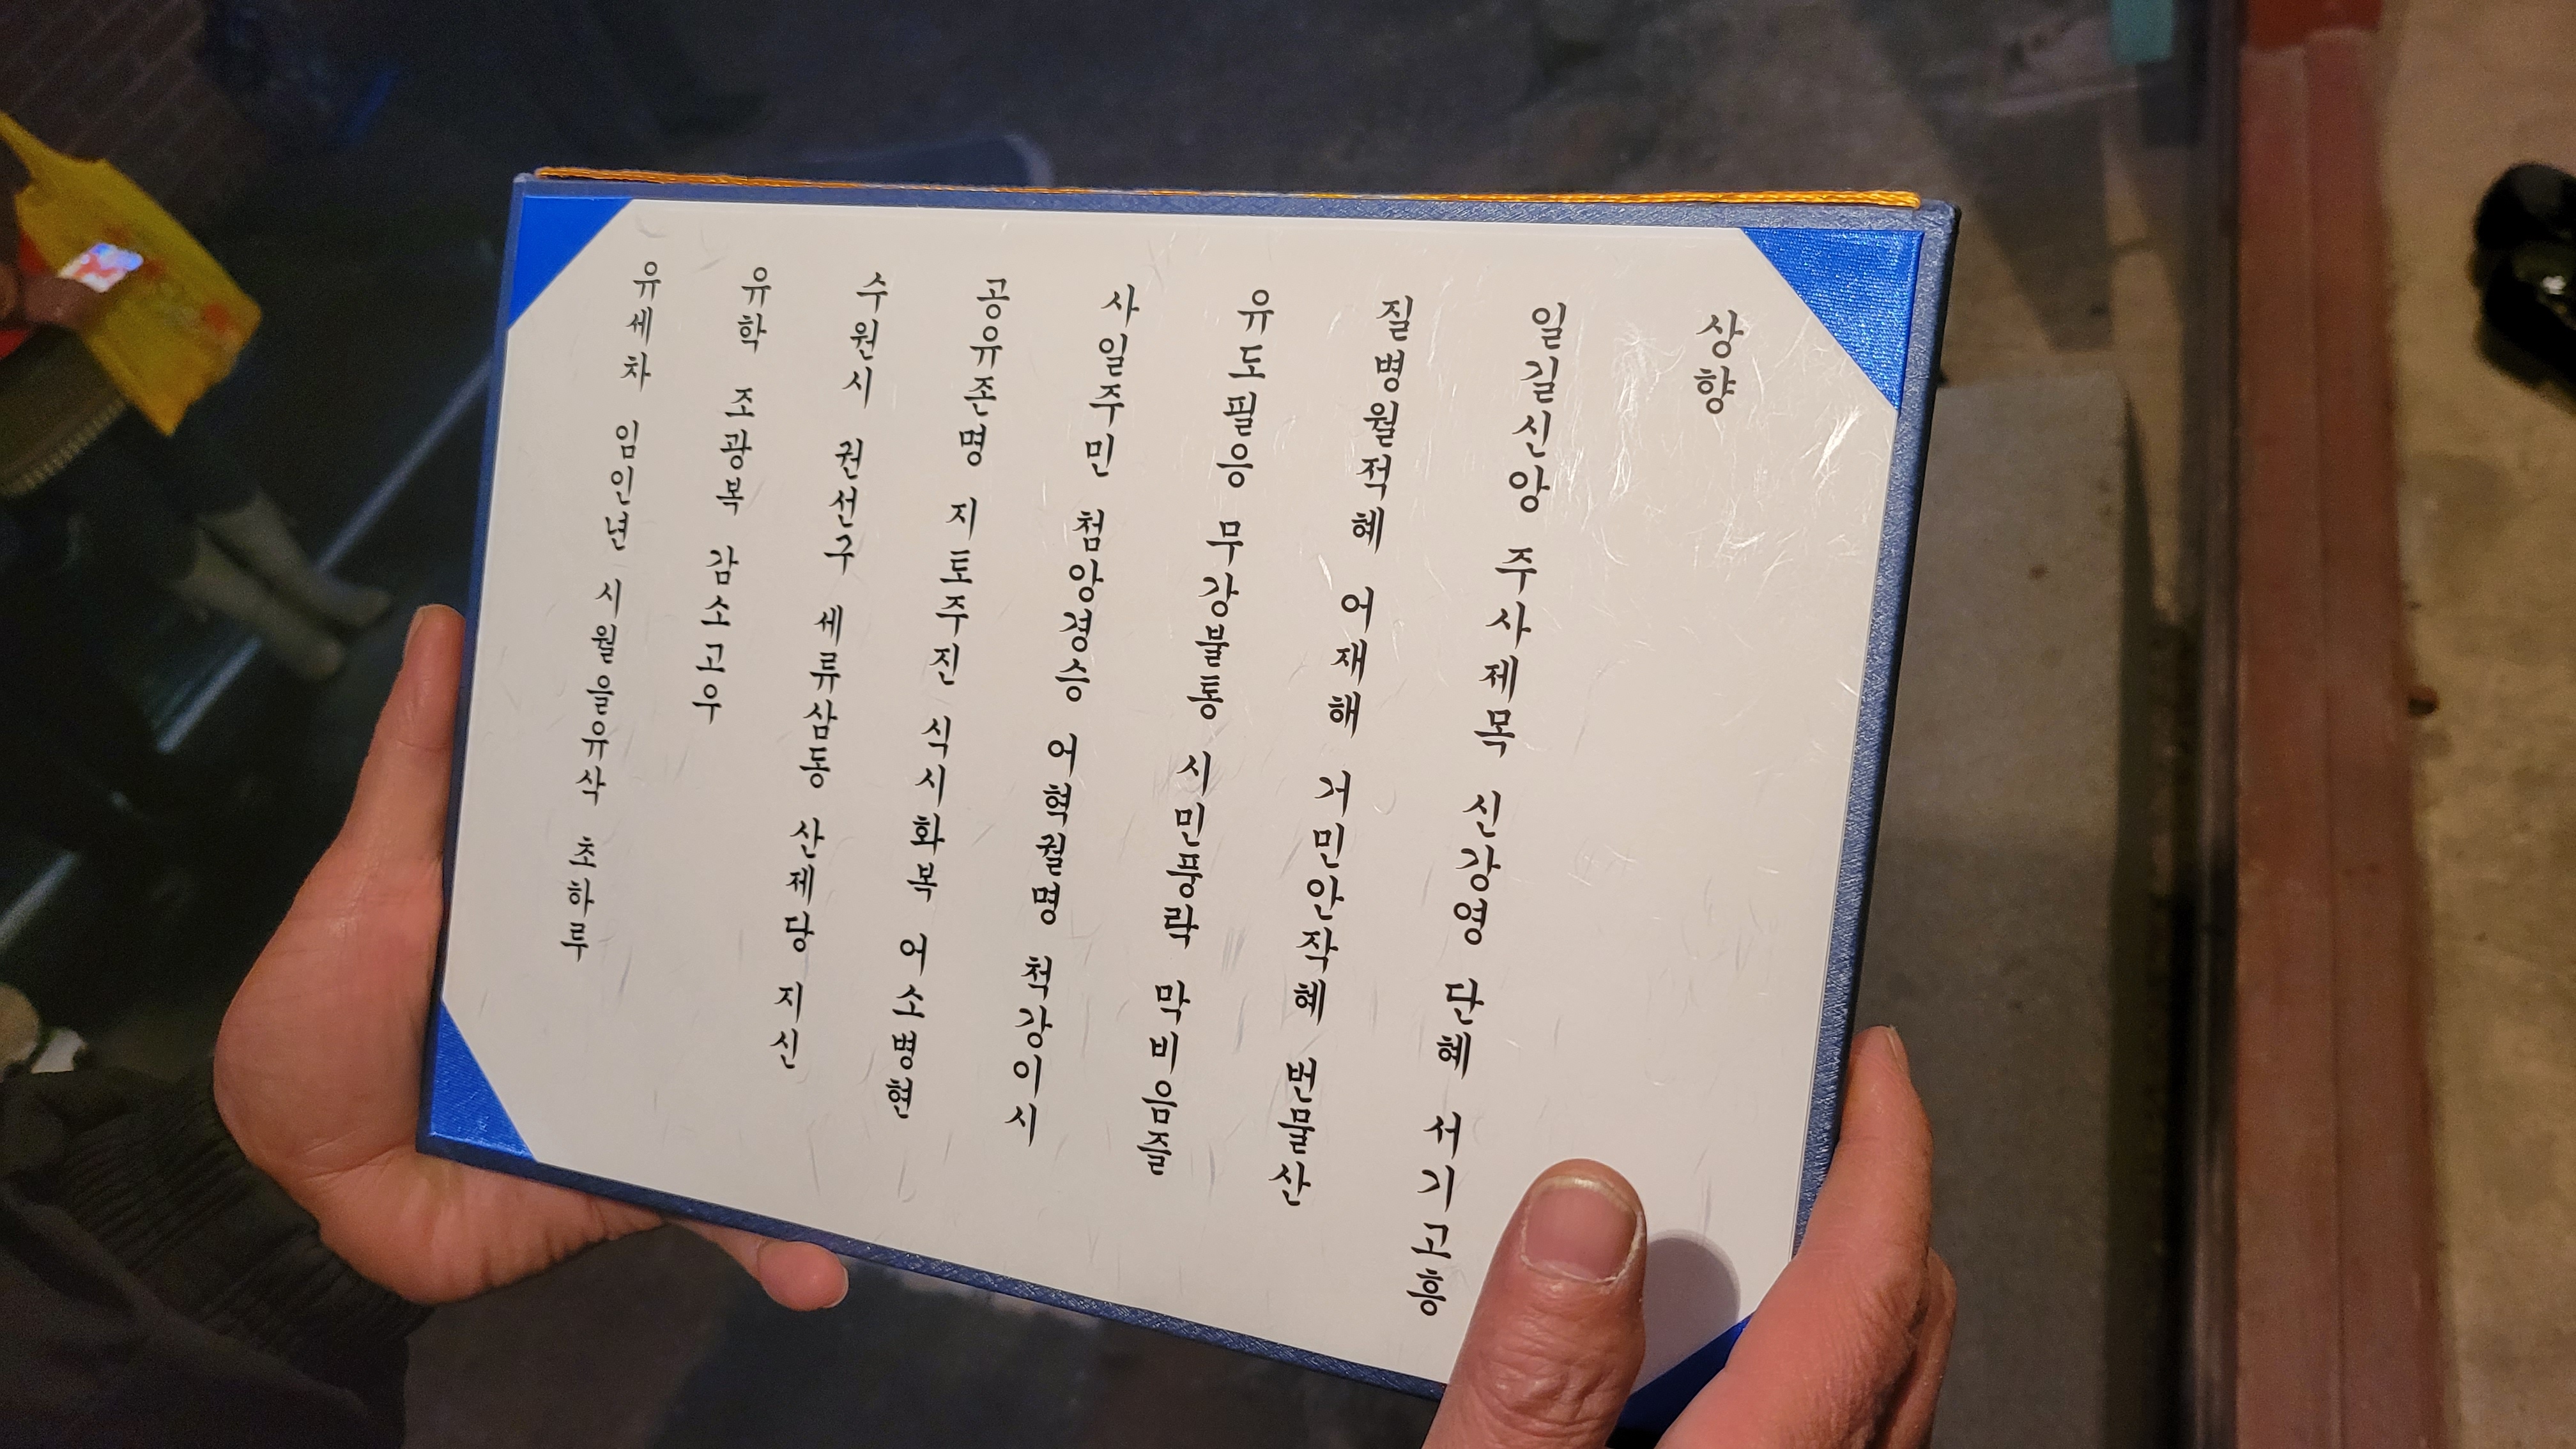 유세차 임인년 시월을유삭 초하루
유학 조광복 감소고우
수원시 권선구 세류삼동 산제당 지신
공유존명 지토주진 식시화복 어소병현
사일주민 첨앙경승 어혁궐명 척강이시
유도필응 무강불통 시민풍락 막비음즐
질병월적혜 어재해 거민안작혜 번물산
일길신앙 주사제목 신강영 단혜 서기고흥
상향